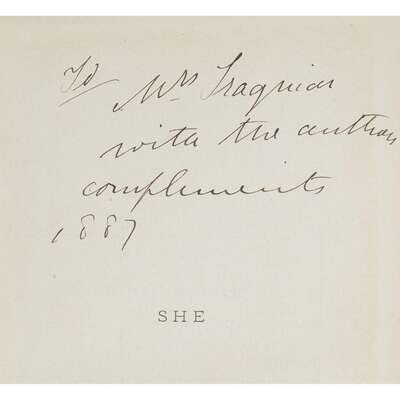 To
Mrs Traquair
with the authors
complements
1887
SHE